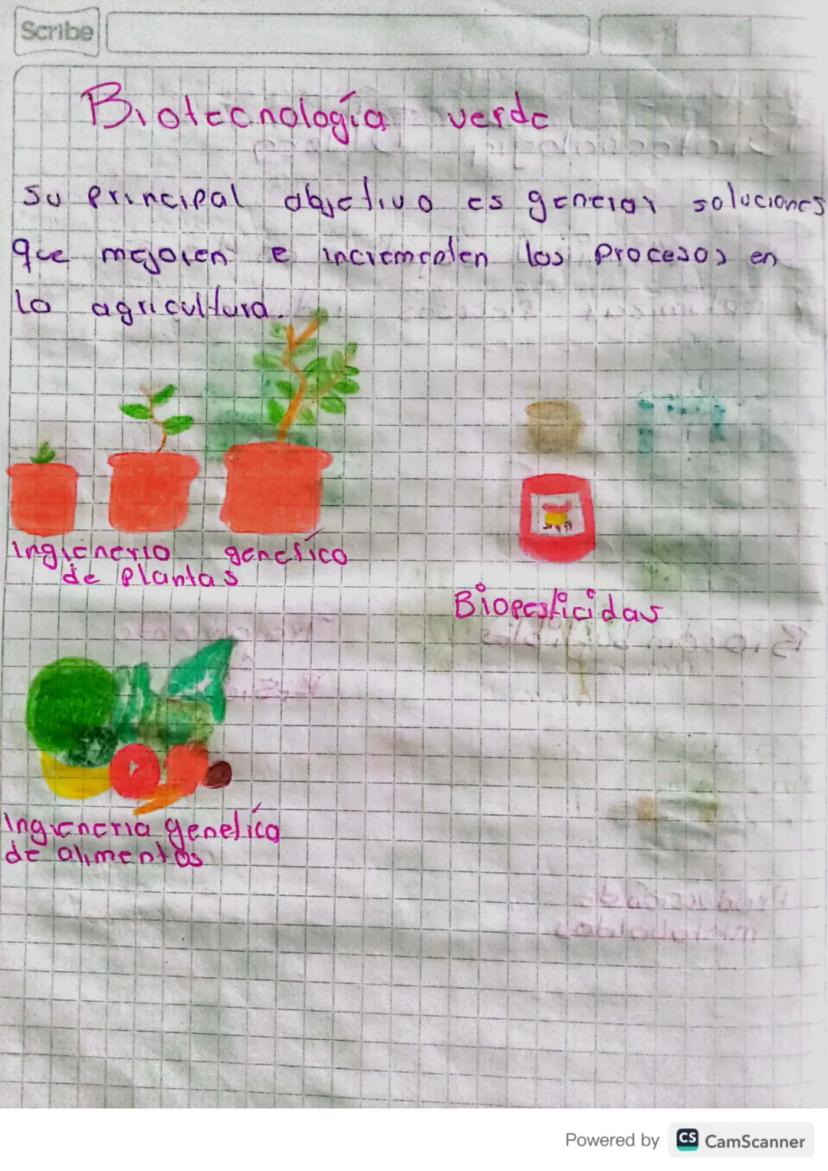 Scribe
Biotecnología verde
su principal objetivo es generar soluciones
que mejoren e incrementen los procesos en
la agricultura.
Ingieneria genetico
de plantas
Biopesticidas
Ingieneria genetica
de alimentos
Powered by CS CamScanner